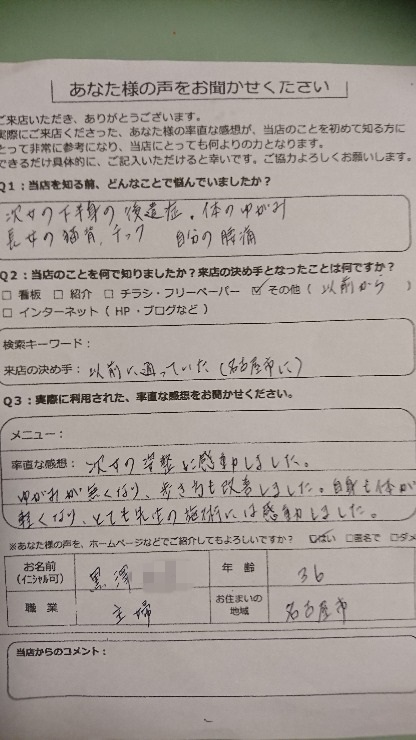 あなた様の声をお聞かせください
ご来店いただき、ありがとうございます。
実際にご来店くださった、あなた様の率直な感想が、当店のことを初めて知る方に
とって非常に参考になり、当店にとっても何よりの力となります。
できるだけ具体的に、ご記入いただけると幸いです。ご協力よろしくお願いします。
Q1：当店を知る前、どんなことで悩んでいましたか？
次女の下半身の後遺症。体のゆがみ
長女の猫背、チック 自分の腰痛
Q2：当店のことを何で知りましたか？来店の決め手となったことは何ですか？
□ 看板 □ 紹介 □ チラシ・フリーペーパー ☑ その他（以前から）
□ インターネット（HP・ブログなど）
検索キーワード：
来店の決め手：以前に通っていた（名古屋市に）
Q3：実際に利用された、率直な感想をお聞かせください。
メニュー：
率直な感想：次女の調整に感動しました。
ゆがみが無くなり、歩き方も改善しました。自身も体が
軽くなり、とても先生の施術には感動しました。
※あなた様の声を、ホームページなどでご紹介してもよろしいですか？ ☑はい □匿名で □ダメ
お名前（イニシャル可） 黒澤 年齢 36
職業 主婦 お住まいの地域 名古屋市
当店からのコメント：